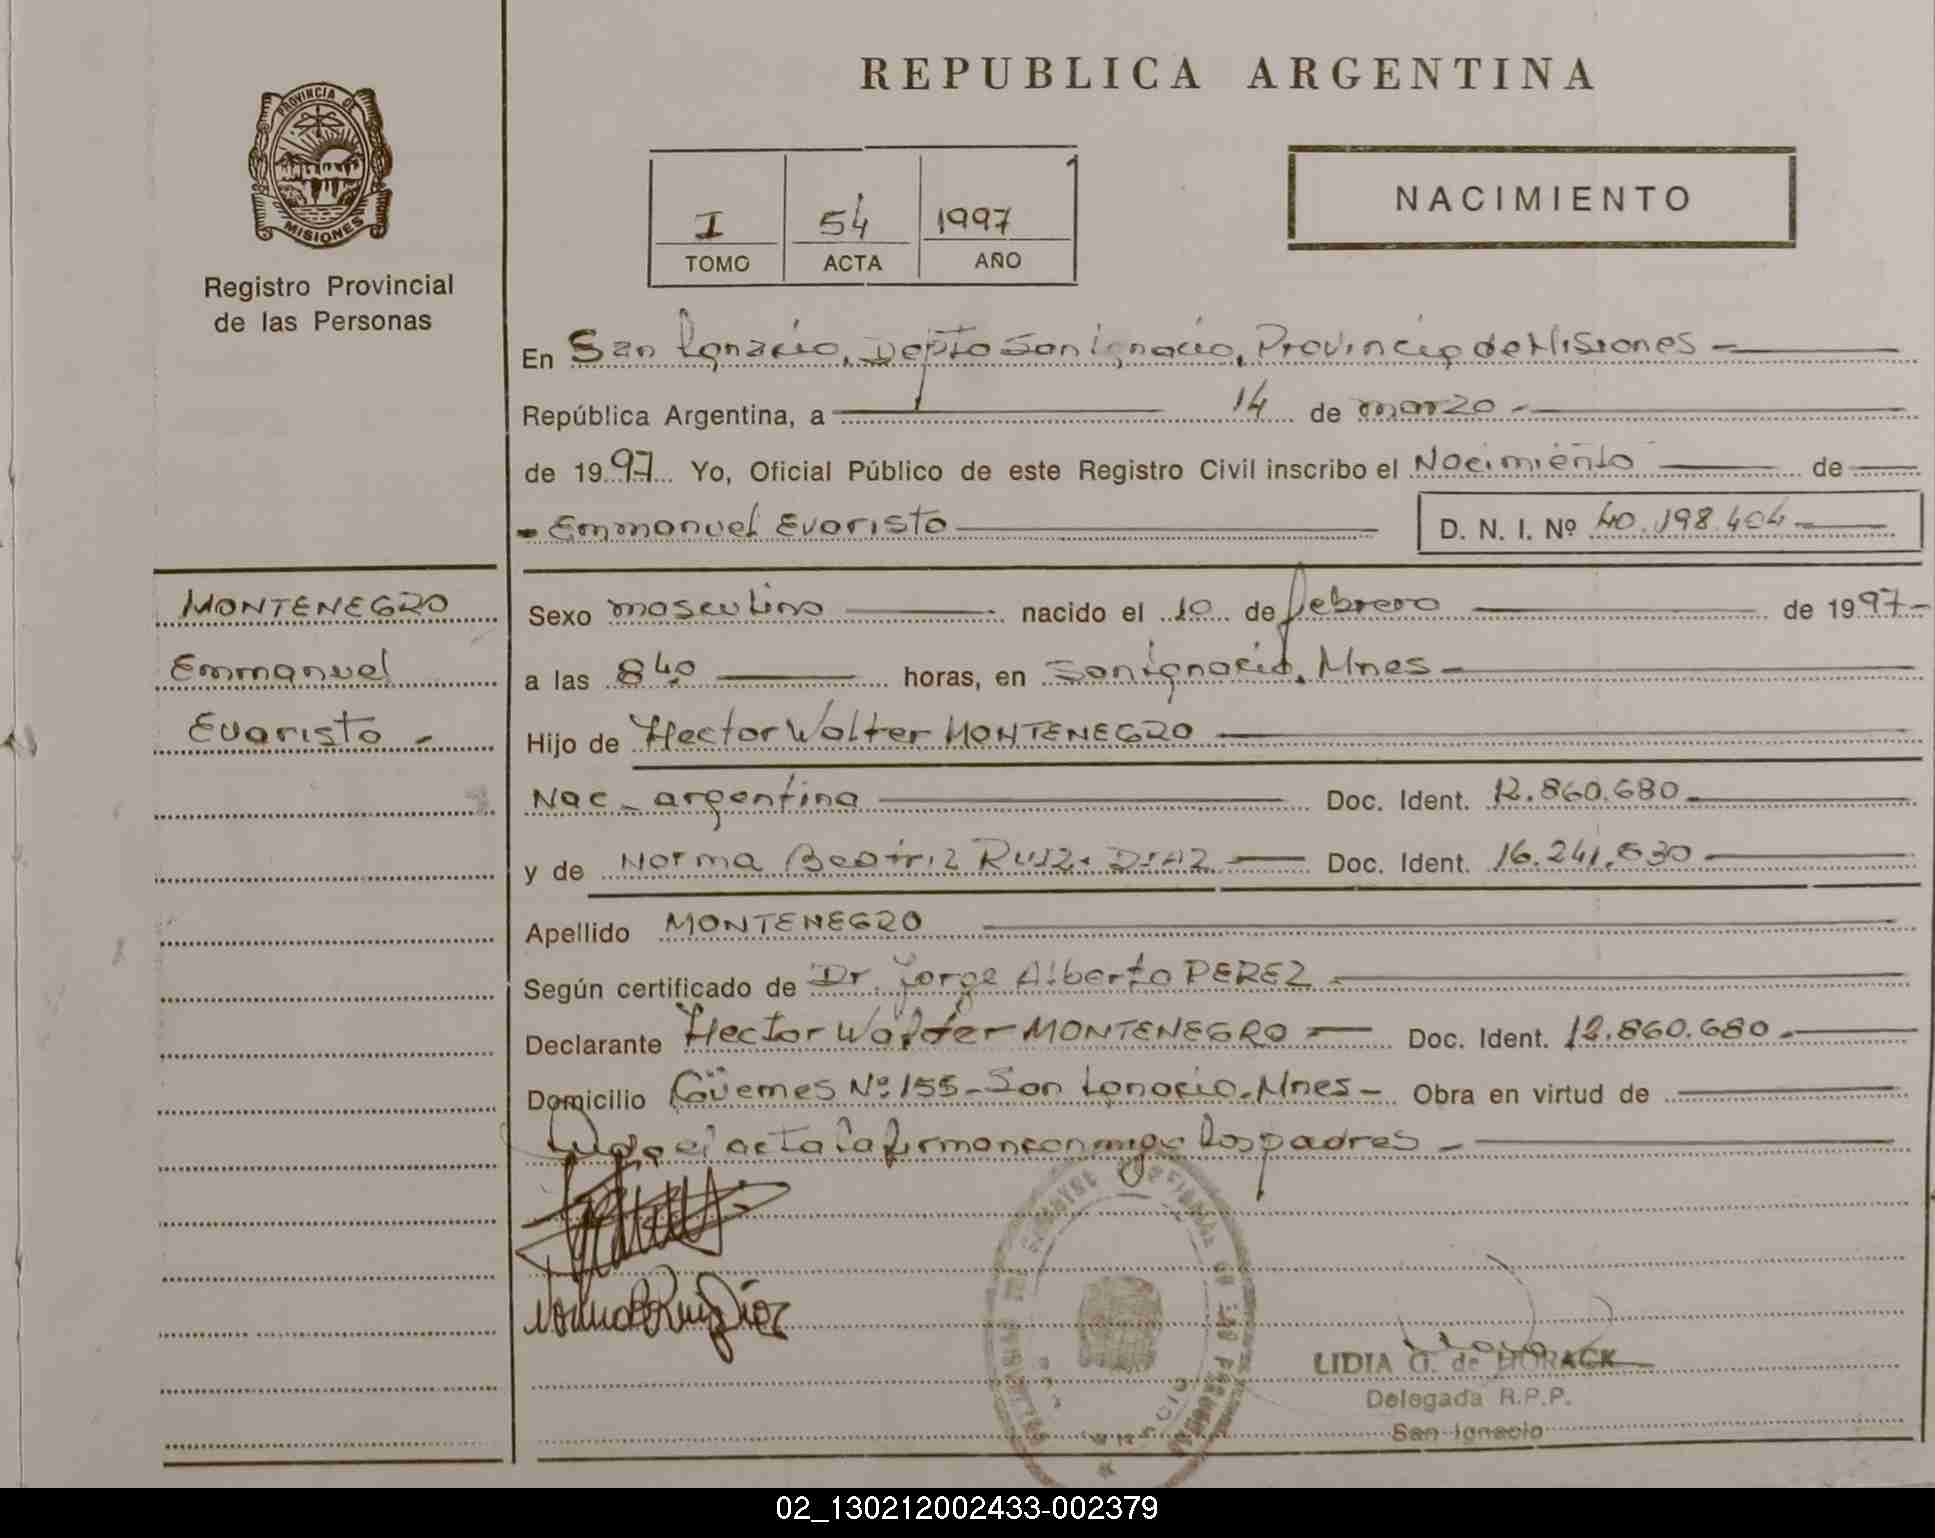 REPUBLICA ARGENTINA
PROVINCIA DE
MISIONES
Registro Provincial
de las Personas
I 54 1997
TOMO ACTA AÑO
NACIMIENTO
En San Ignacio, Depto San Ignacio, Provincia de Misiones -
República Argentina, a 14 de marzo -
de 1997 Yo, Oficial Público de este Registro Civil inscribo el Nacimiento de
- Emmanuel Evaristo D. N. I. Nº 40.198.404 -
MONTENEGRO
Emmanuel
Evaristo -
Sexo masculino nacido el 10 de febrero de 1997 -
a las 8 40 horas, en San Ignacio, Mnes -
Hijo de Hector Walter MONTENEGRO
Nac - argentina Doc. Ident. 12.860.680 -
y de Norma Beatriz RUIZ DIAZ Doc. Ident. 16.241.530
Apellido MONTENEGRO
Según certificado de Dr. Jorge Alberto PEREZ -
Declarante Hector Walter MONTENEGRO - Doc. Ident. 12.860.680 -
Domicilio Güemes Nº 155 - San Ignacio - Mnes - Obra en virtud de
el acta la firman conmigo los padres -
Norma B Ruiz Díaz
LIDIA G. de HORACK
Delegada R.P.P.
San Ignacio
02_130212002433-002379